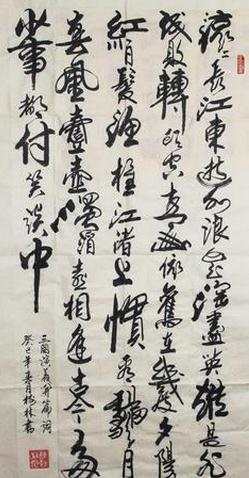 滚滚長江東逝水浪花淘盡英雄是非
成敗轉頭空青山依舊在幾度夕陽
紅白髮漁樵江渚上慣看秋月
春風壹壺濁酒喜相逢古今多
少事都付笑談中
三國演義開篇詞
癸巳年春月林書